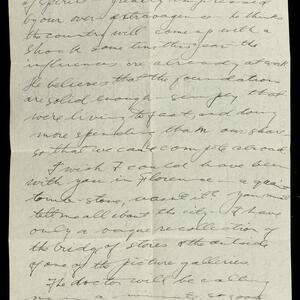 of spirits - greatly impressed
by our over-extravagance. He thinks
the country will come up with a
shock some time this year - the
influences are already at work
He believes that the foundations
are solid enough - simply that
we're living too fast, and doing
more spending than our share
so that we can't compete abroad.
I wish I could have been
with you in Florence - a
town, wasn't it? You must
tell me all about the city - I have
only a vague recollection of
the bridge of stores & the outside
of one of the picture galleries.
The doctor will be calling
me in a minute, so good